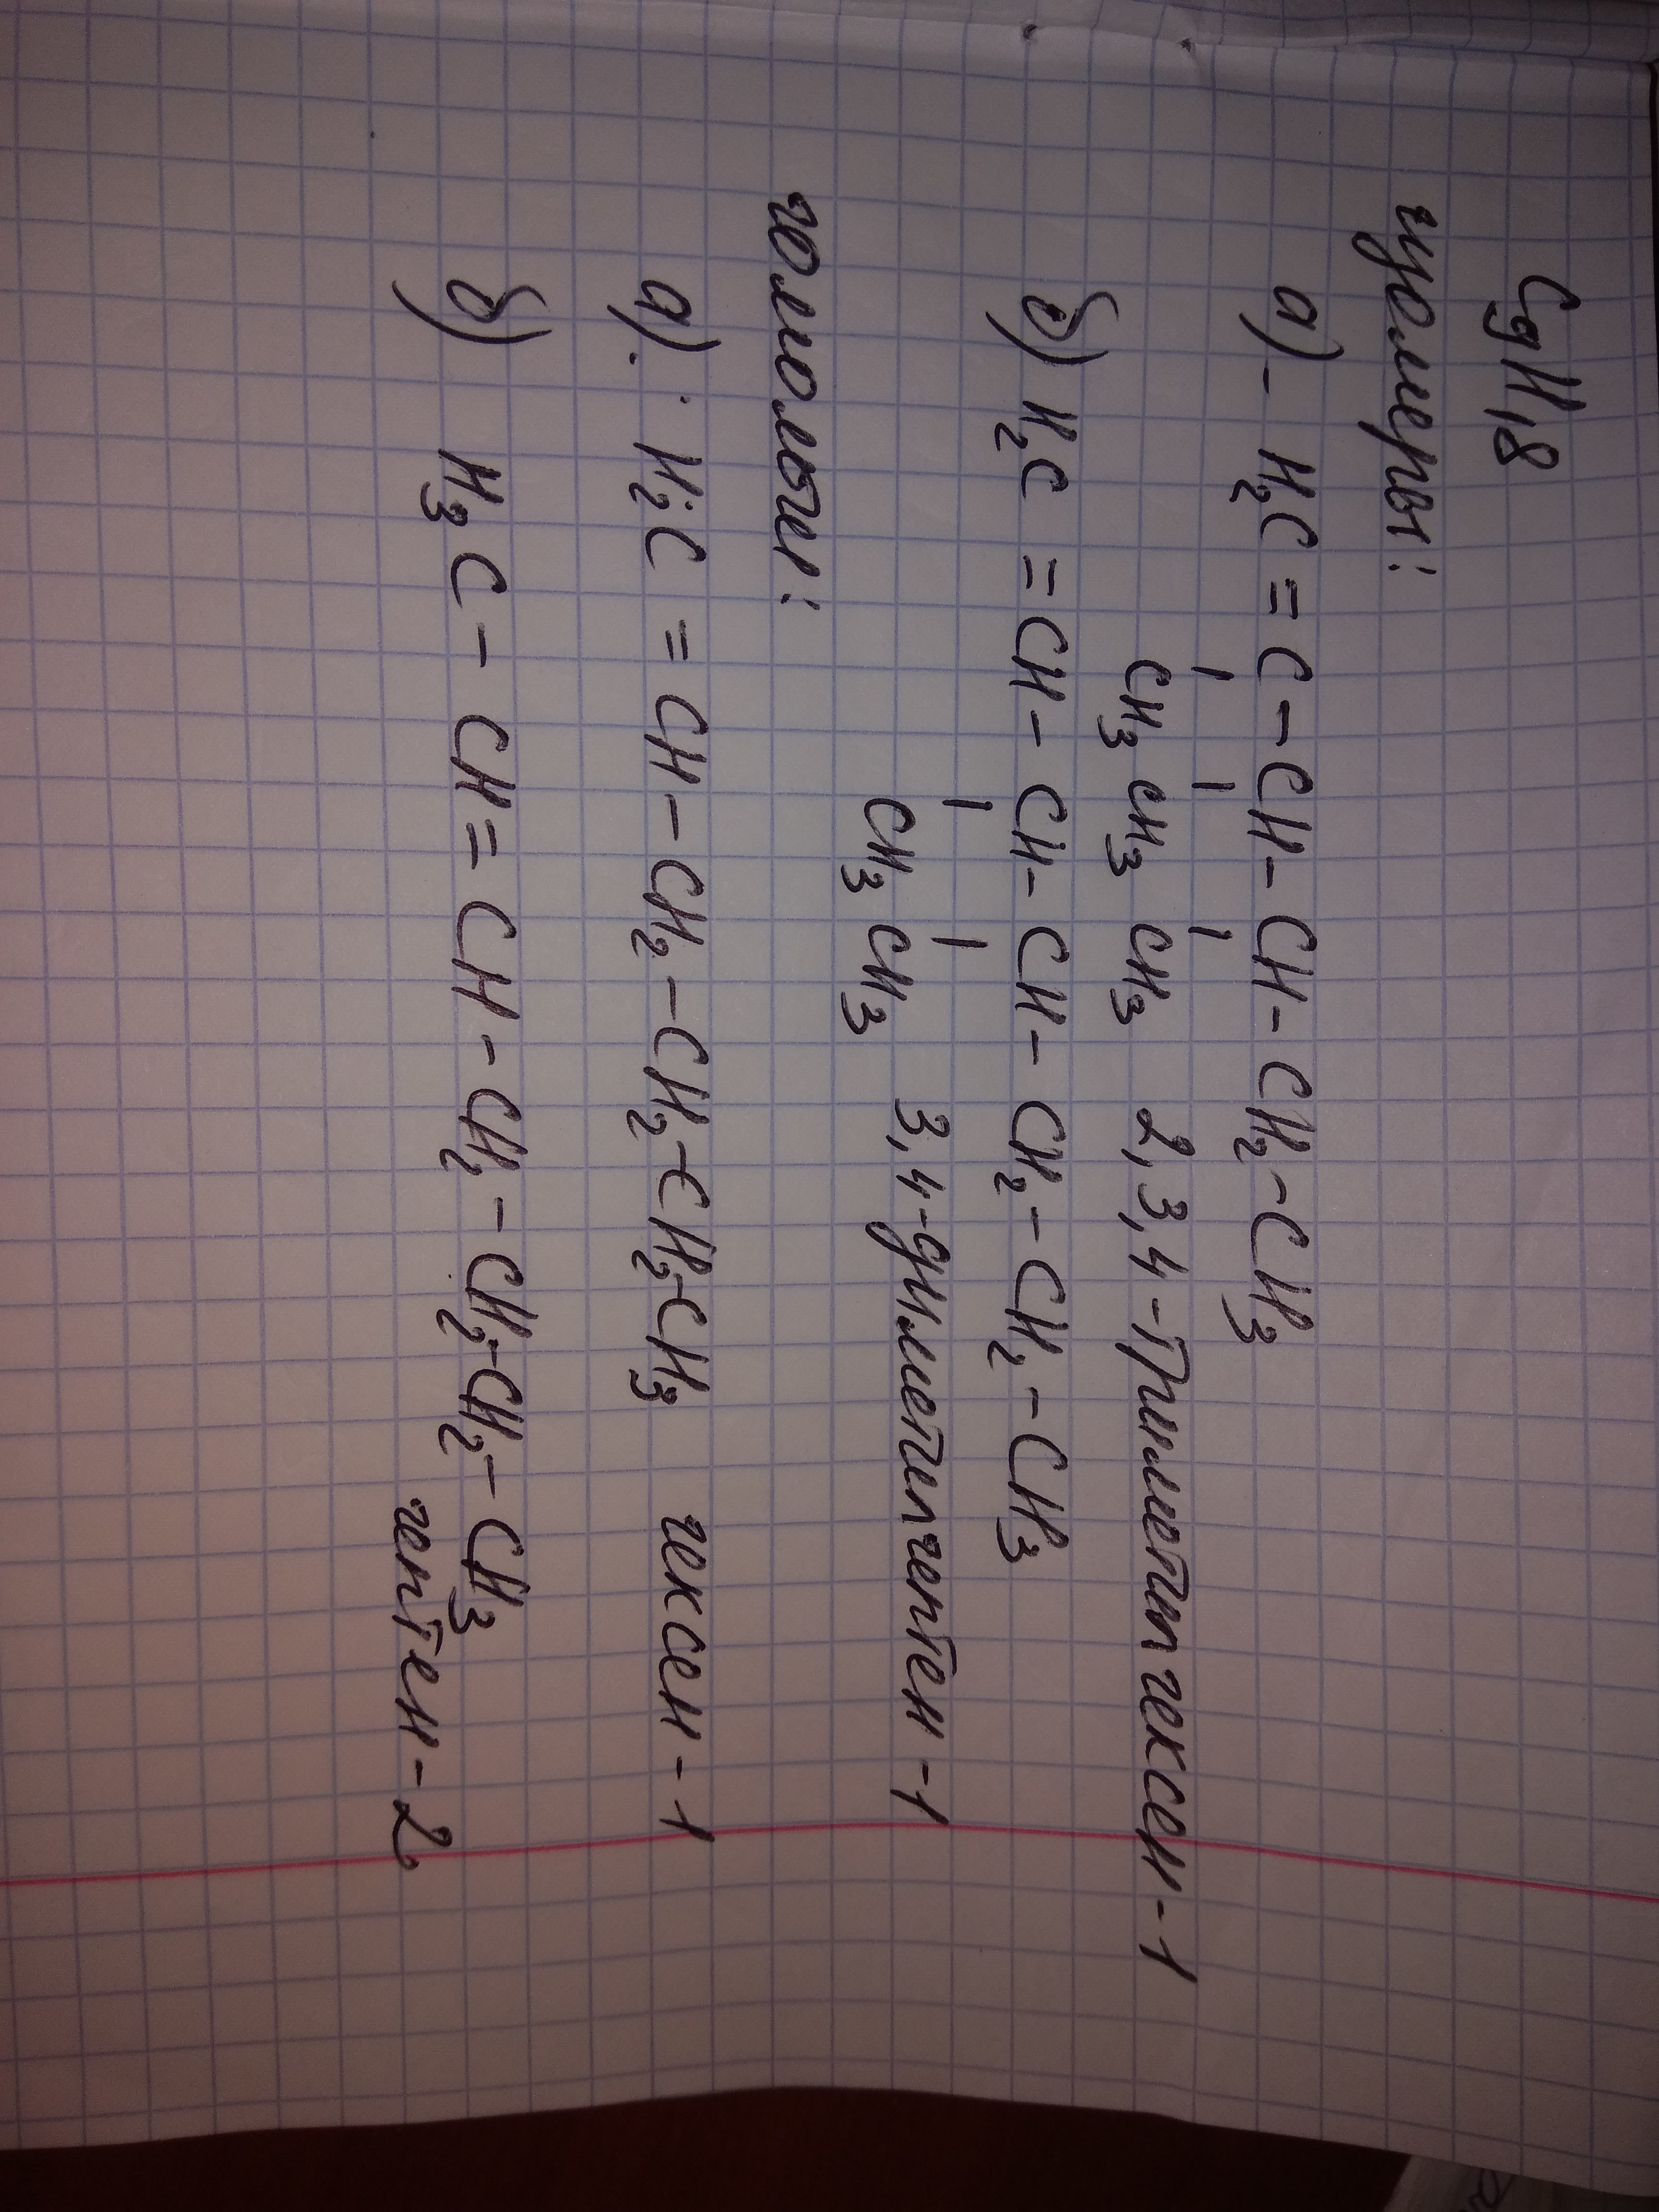 C9H18
изомеры:
а) - H2C = C - CH - CH - CH2 - CH3
CH3 CH3 CH3 2,3,4-Триметилгексен-1
б) H2C = CH - CH - CH - CH2 - CH2 - CH3
CH3 CH3 3,4-диметилгептен-1
гомологи:
а). H2C = CH - CH2 - CH2 - CH2 - CH3 гексен-1
б) H3C - CH = CH - CH2 - CH2 - CH2 - CH3
гептен-2